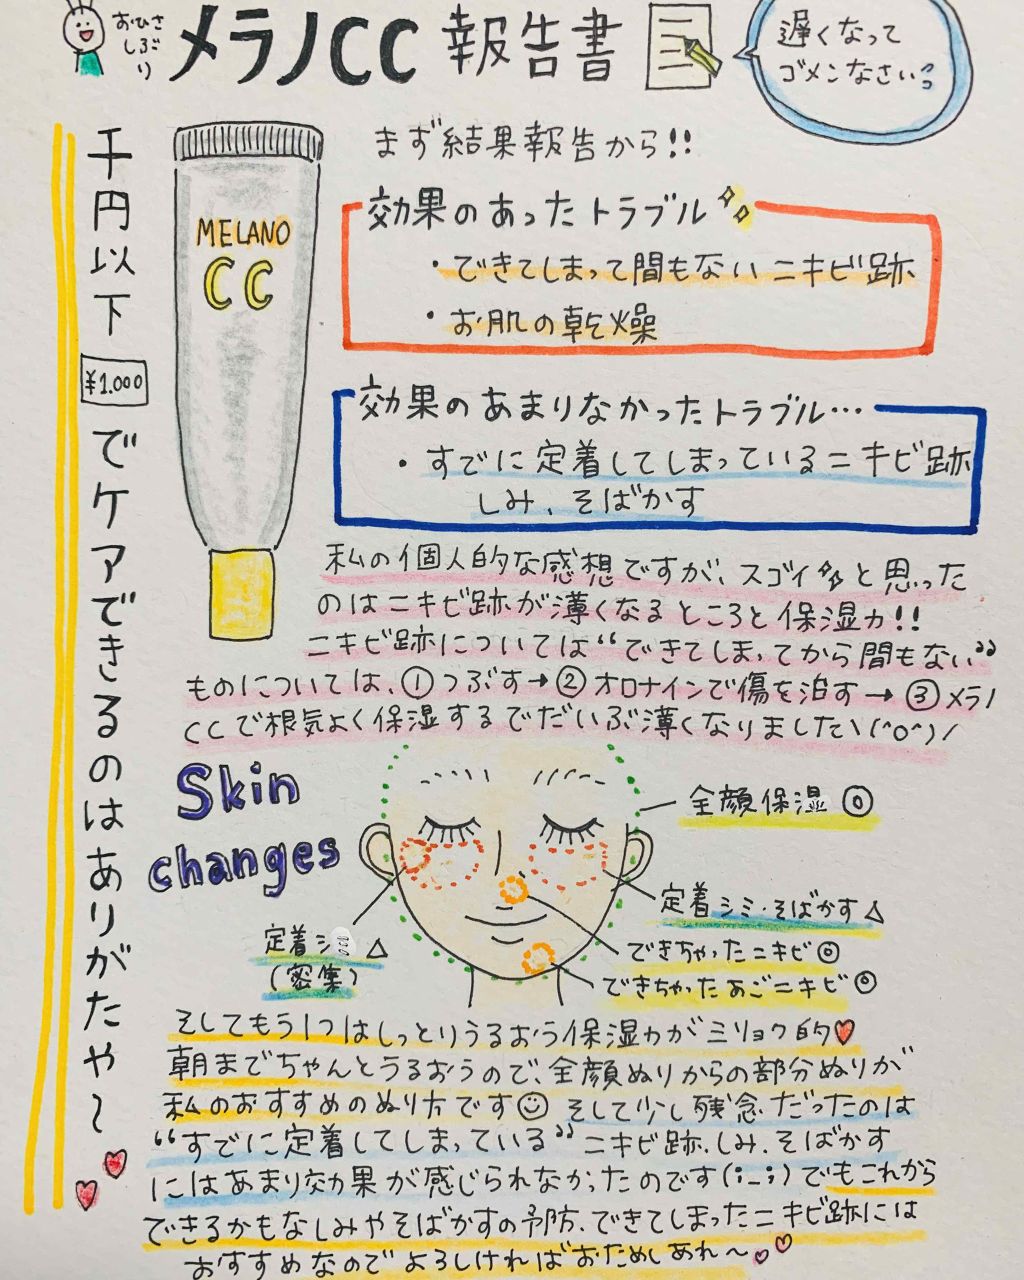 おひさ
しぶり
メラノCC 報告書
遅くなって
ゴメンなさいっ
千円以下
¥1.000
でケアできるのはありがたや〜
MELANO
CC
まず結果報告から!!
効果のあったトラブル
・できてしまって間もないニキビ跡
・お肌の乾燥
効果のあまりなかったトラブル…
・すでに定着してしまっているニキビ跡
しみ、そばかす
私の個人的な感想ですが、スゴイ✨と思った
のはニキビ跡が薄くなるところと保湿力!!
ニキビ跡については“できてしまってから間もない”
ものについては、①つぶす→②オロナインで傷を治す→③メラノ
CCで根気よく保湿するでだいぶ薄くなりました\(^o^)/
Skin
changes
全顔保湿◎
定着シミ・そばかす△
定着シミ△
(密集)
できちゃったニキビ◎
できちゃったあごニキビ◎
そしてもう1つはしっとりうるおう保湿力がミリョク的♥
朝までちゃんとうるおうので、全顔ぬりからの部分ぬりが
私のおすすめのぬり方です☺そして少し残念だったのは
“すでに定着してしまっている”ニキビ跡、しみ、そばかす
にはあまり効果が感じられなかったのです(;_;)でもこれから
できるかもなしみやそばかすの予防、できてしまったニキビ跡には
おすすめなのでよろしければおためしあれ〜♡♡